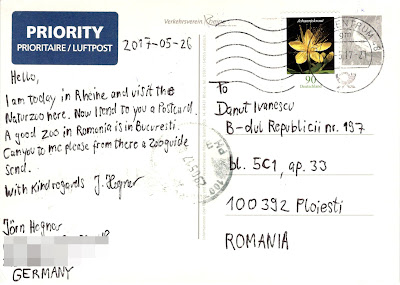 PRIORITY
PRIORITAIRE / LUFTPOST
Verkehrsverein
2017-05-26
Hello,
I am today in Rheine and visit the
Naturzoo here. Now I send to you a Postcard.
A good zoo in Romania is in Bucuresti.
Can you to me please from there a Zooguide
send.
With kind regards J. Hegner
Jörn Hegner
GERMANY
90
Deutschland
To
Danut Ivanescu
B-dul Republicii nr. 197
bl. 5C1, ap. 33
100392 Ploiesti
ROMANIA